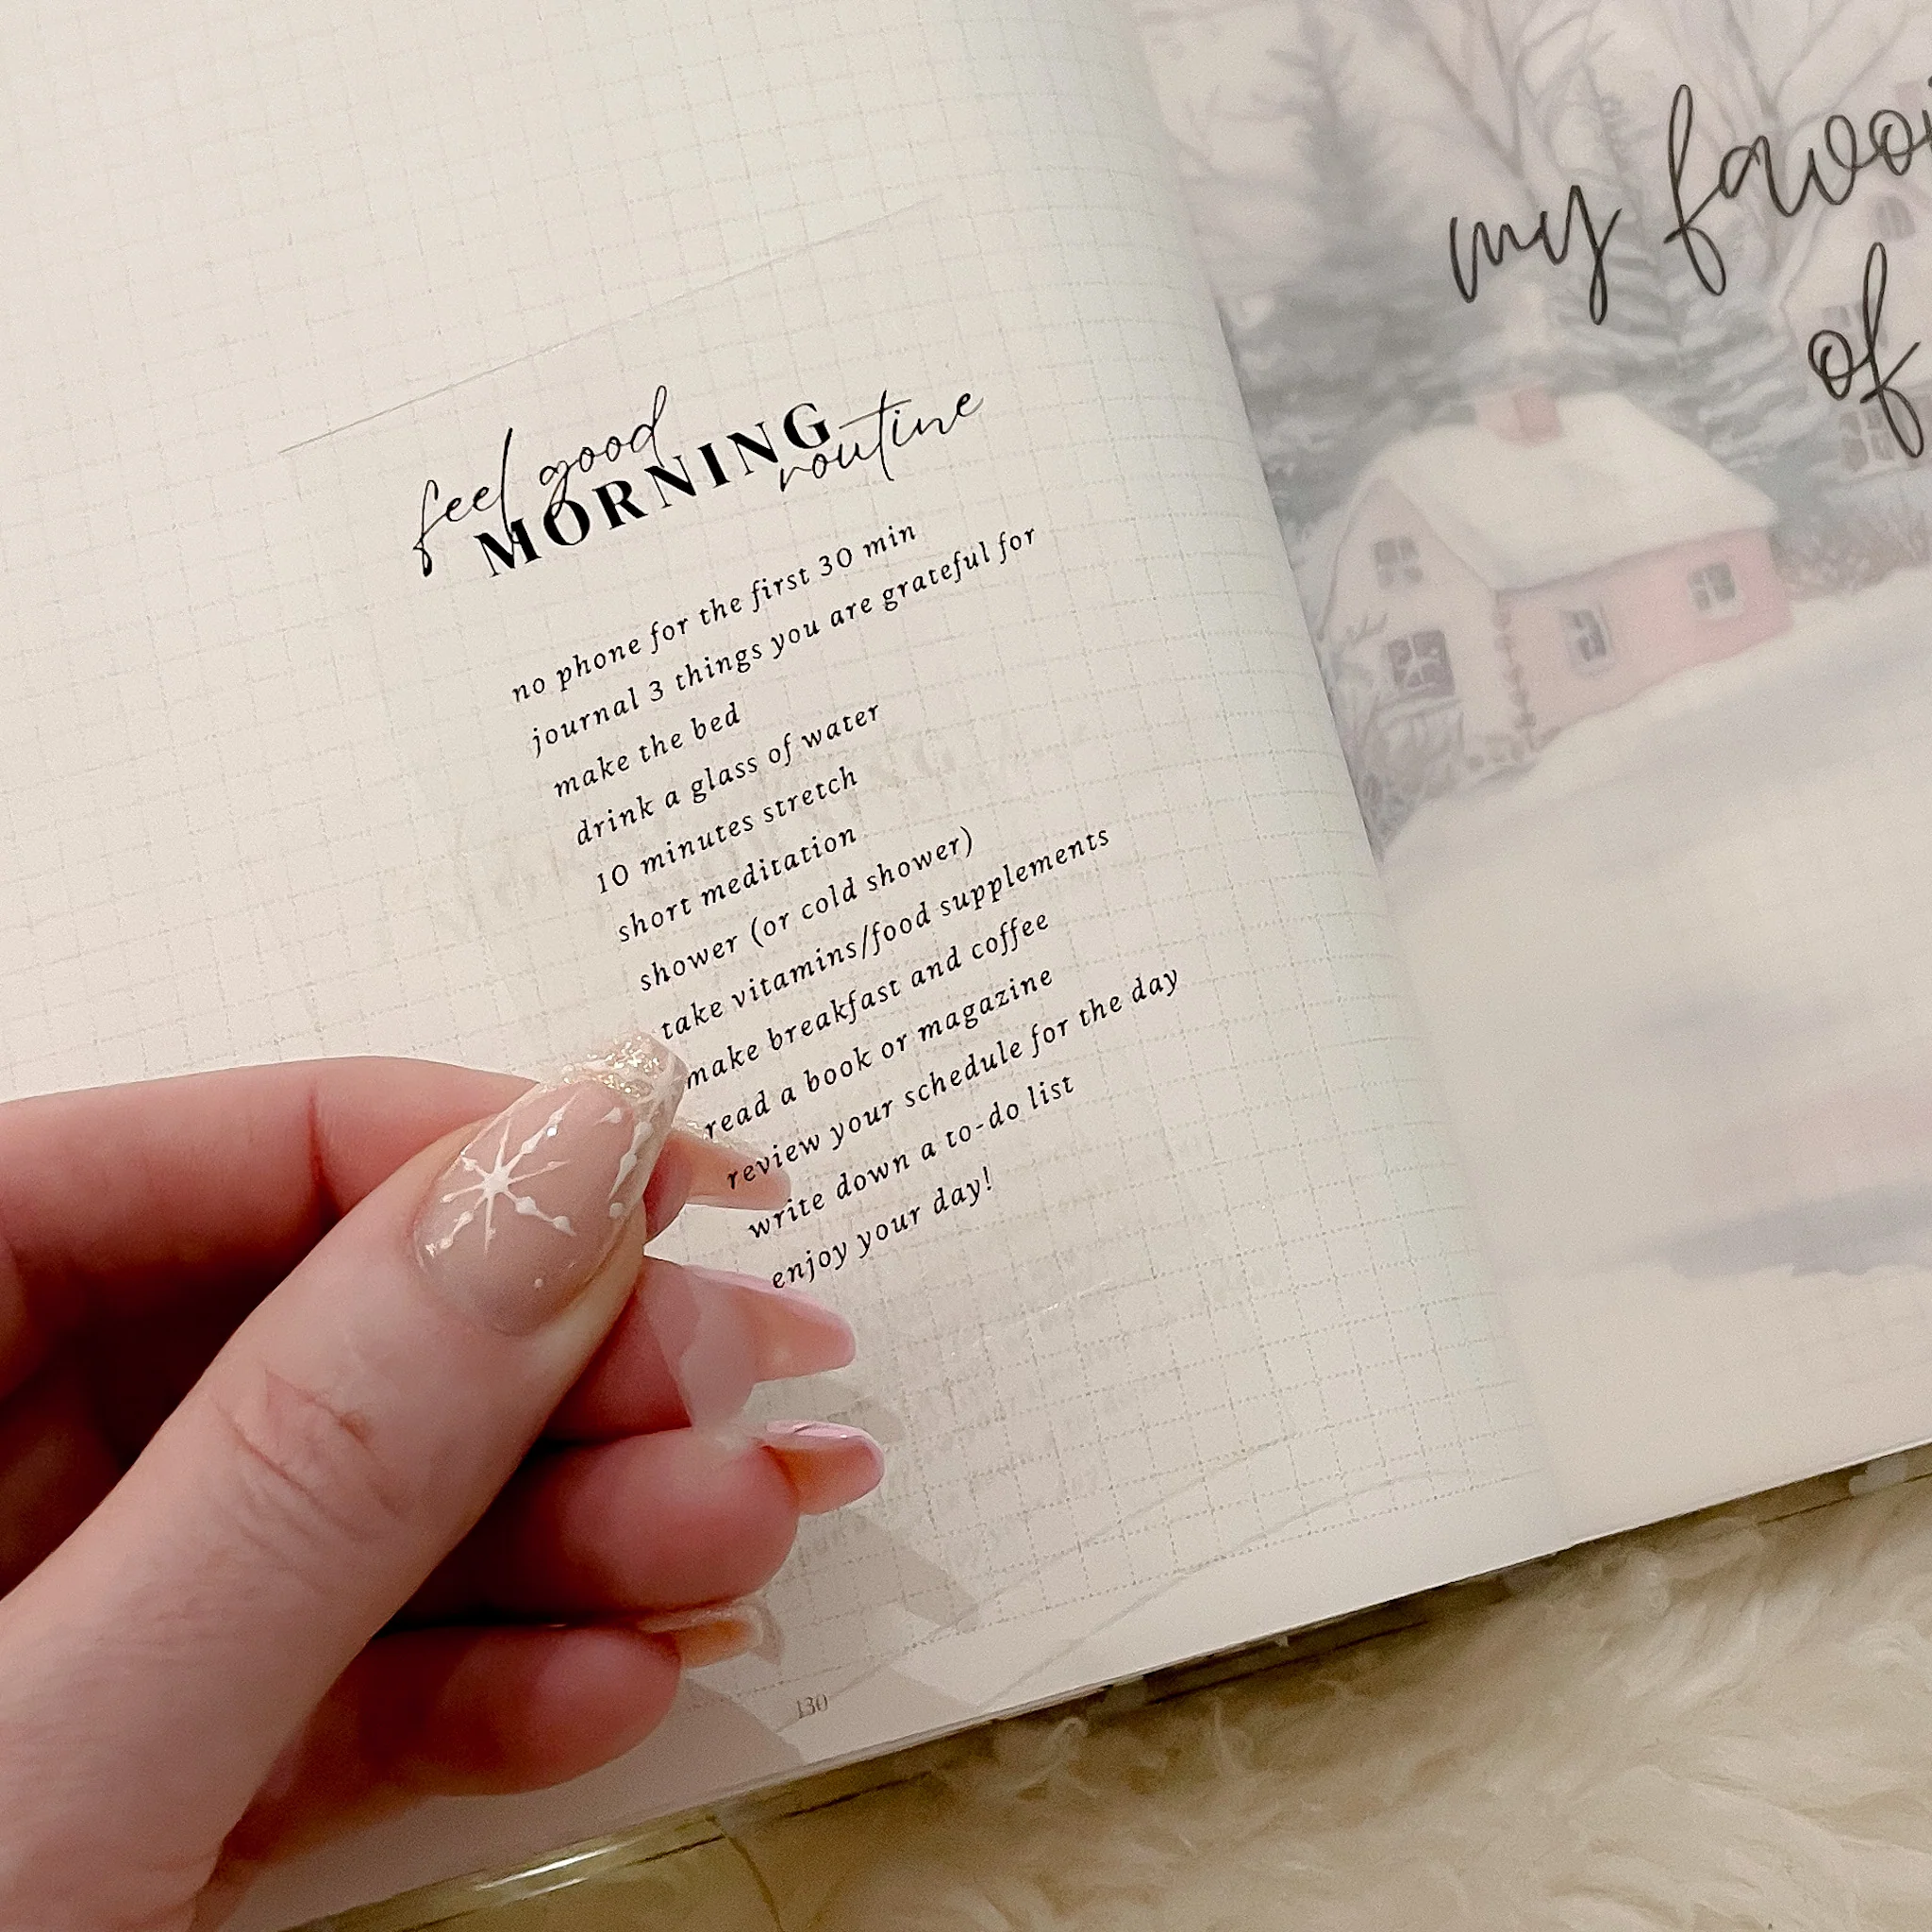 feel good
MORNING
routine
no phone for the first 30 min
journal 3 things you are grateful for
make the bed
drink a glass of water
10 minutes stretch
short meditation
shower (or cold shower)
take vitamins/food supplements
make breakfast and coffee
read a book or magazine
review your schedule for the day
write down a to-do list
enjoy your day!
130
my
of